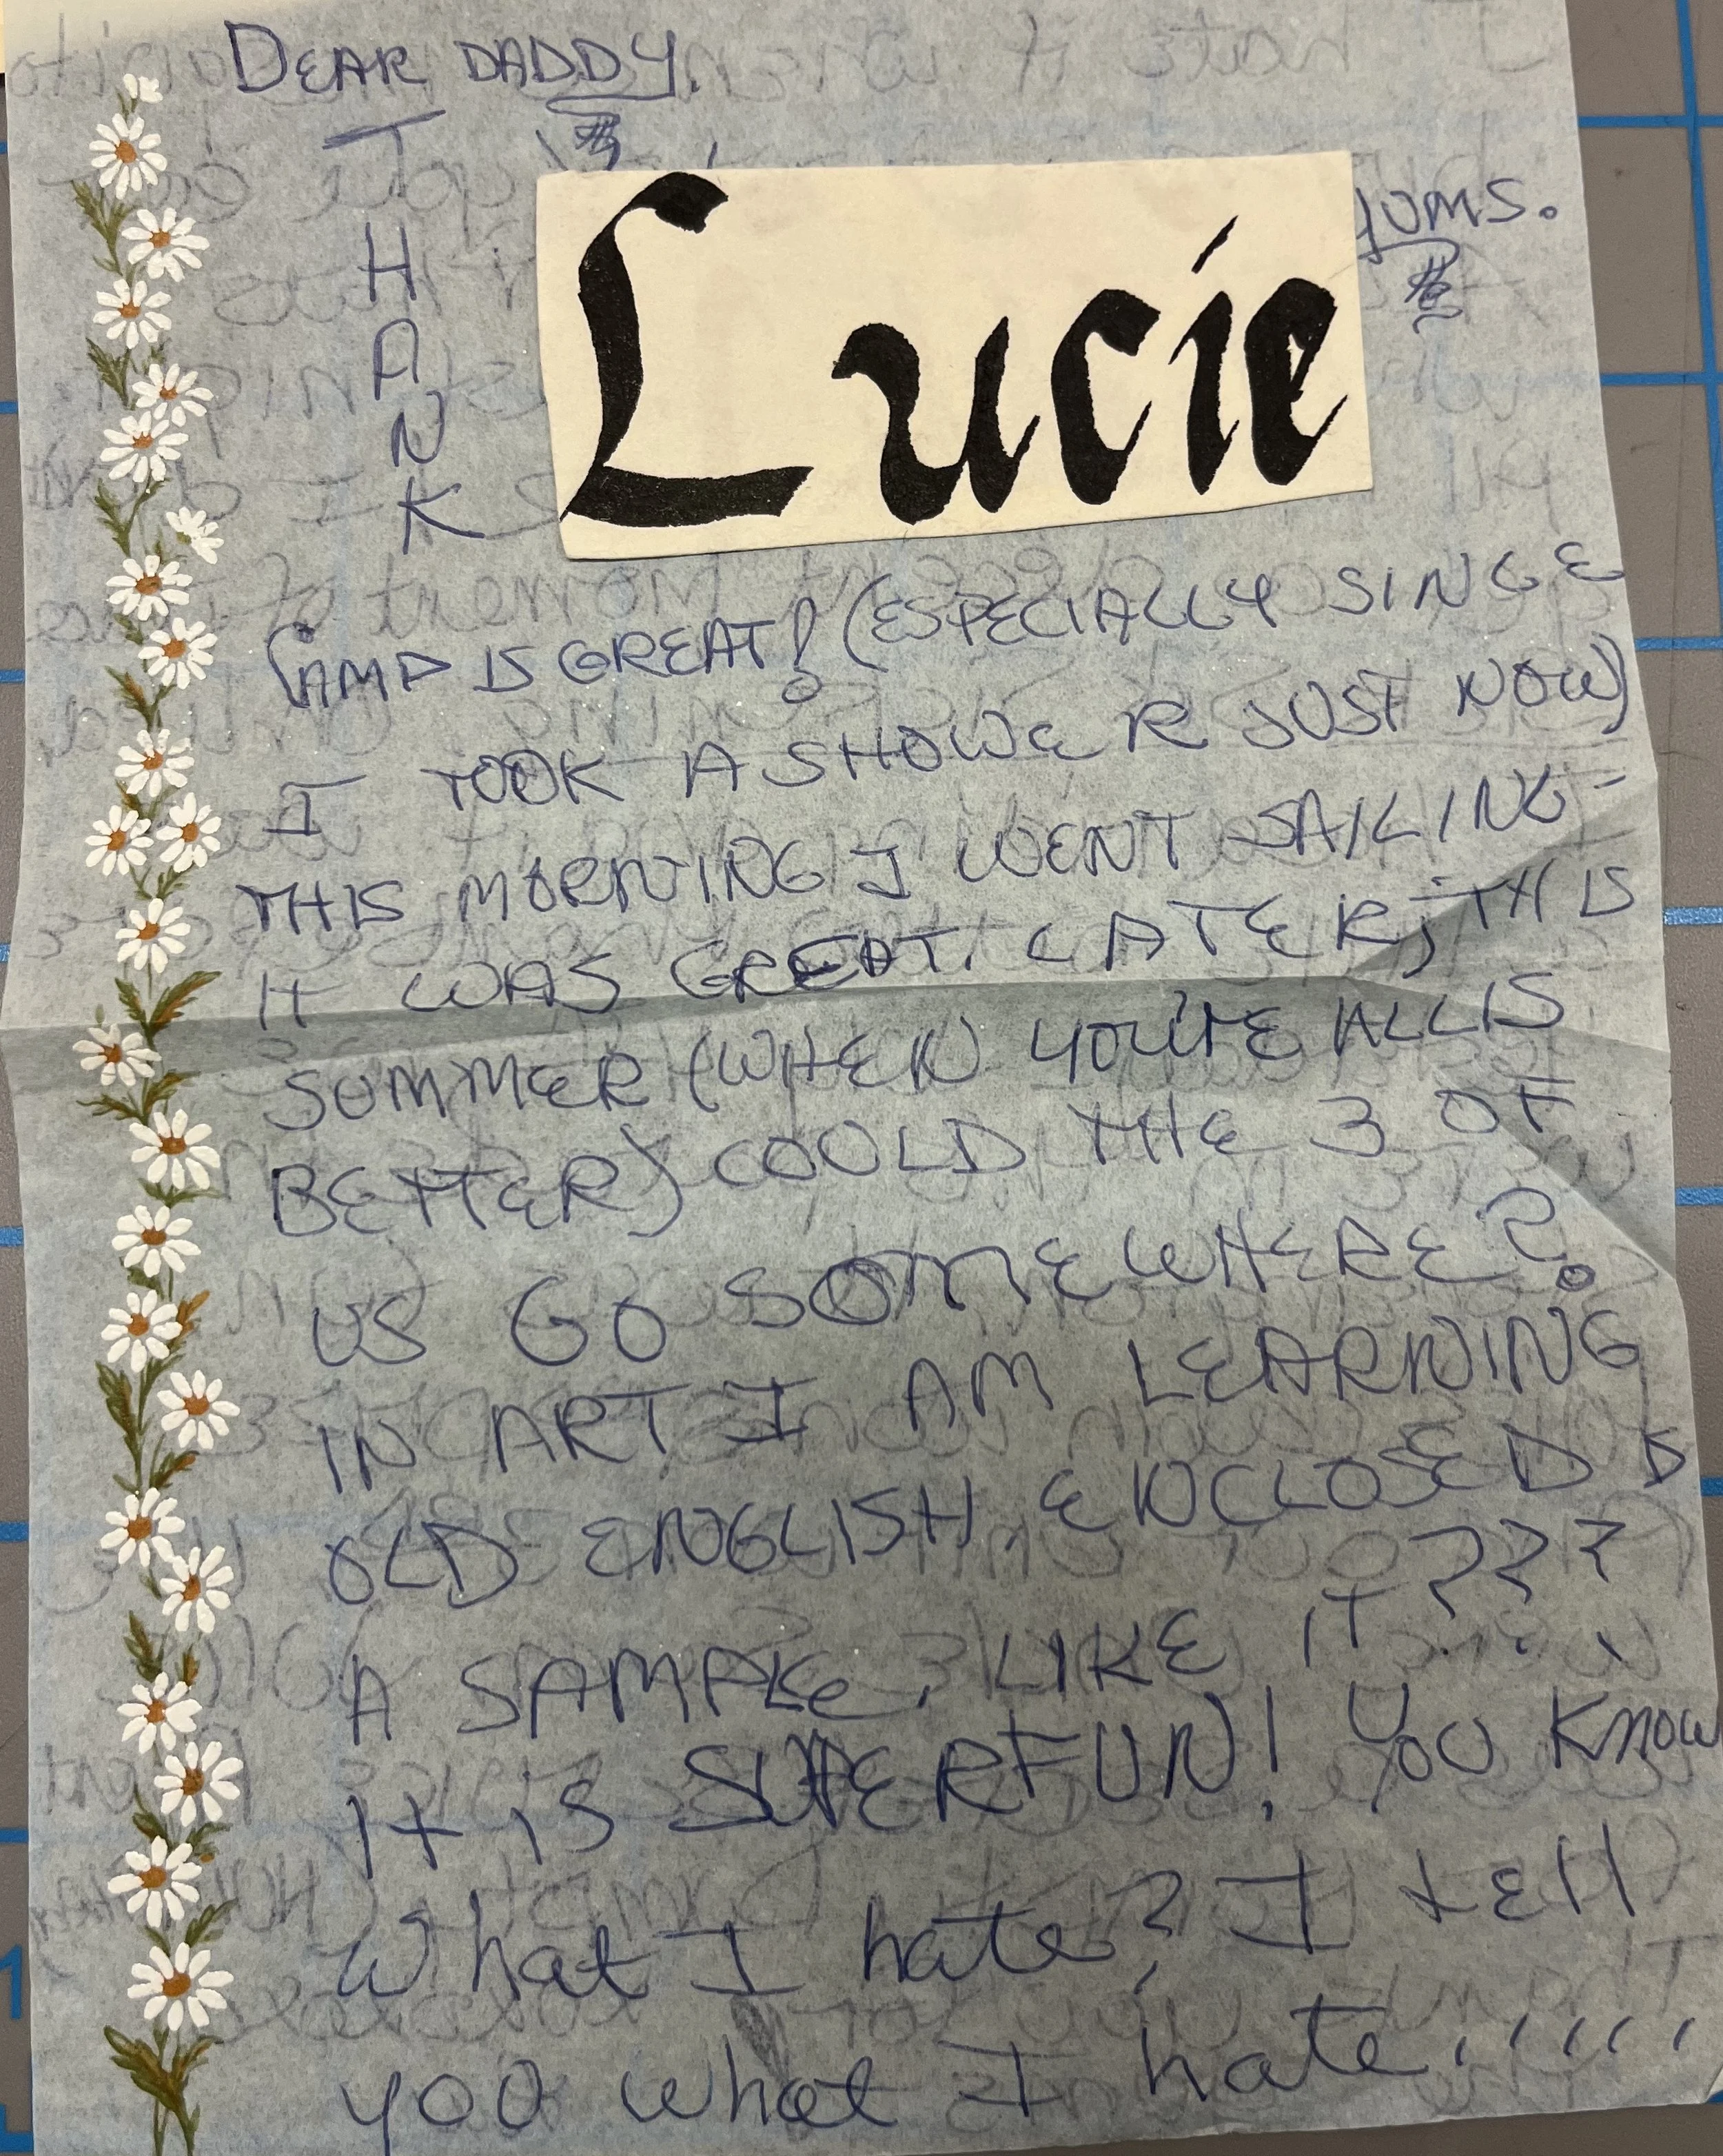 DEAR DADDY.
THANK
YUMS.
Lucie
CAMP IS GREAT! (ESPECIALLY SINCE
I TOOK A SHOWER JUST NOW)
THIS MORNING I WENT SAILING -
IT WAS GREAT. LATER, THIS
SUMMER (WHEN YOU'RE ALL IS
BETTER) COULD THE 3 OF
US GO SOMEWHERE?
IN ART I AM LEARNING
OLD ENGLISH ENCLOSED IS
A SAMPLE, LIKE IT???
It is SUPER FUN! You Know
What I hate? I tell
you what I hate,,,,,